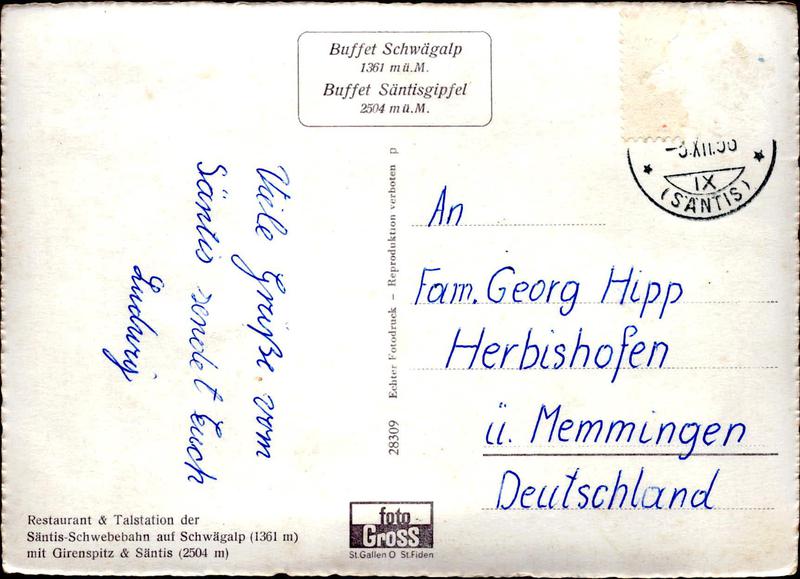 Buffet Schwägalp
1361 m ü.M.
Buffet Säntisgipfel
2504 m ü.M.
Viele Grüße vom
Säntis sendet Euch
Ludwig
Echter Fotodruck – Reproduktion verboten p
28309
An
Fam. Georg Hipp
Herbishofen
ü. Memmingen
Deutschland
XII.
IX
(SÄNTIS)
Restaurant & Talstation der
Säntis-Schwebebahn auf Schwägalp (1361 m)
mit Girenspitz & Säntis (2504 m)
foto
GROSS
St.Gallen O St.Fiden